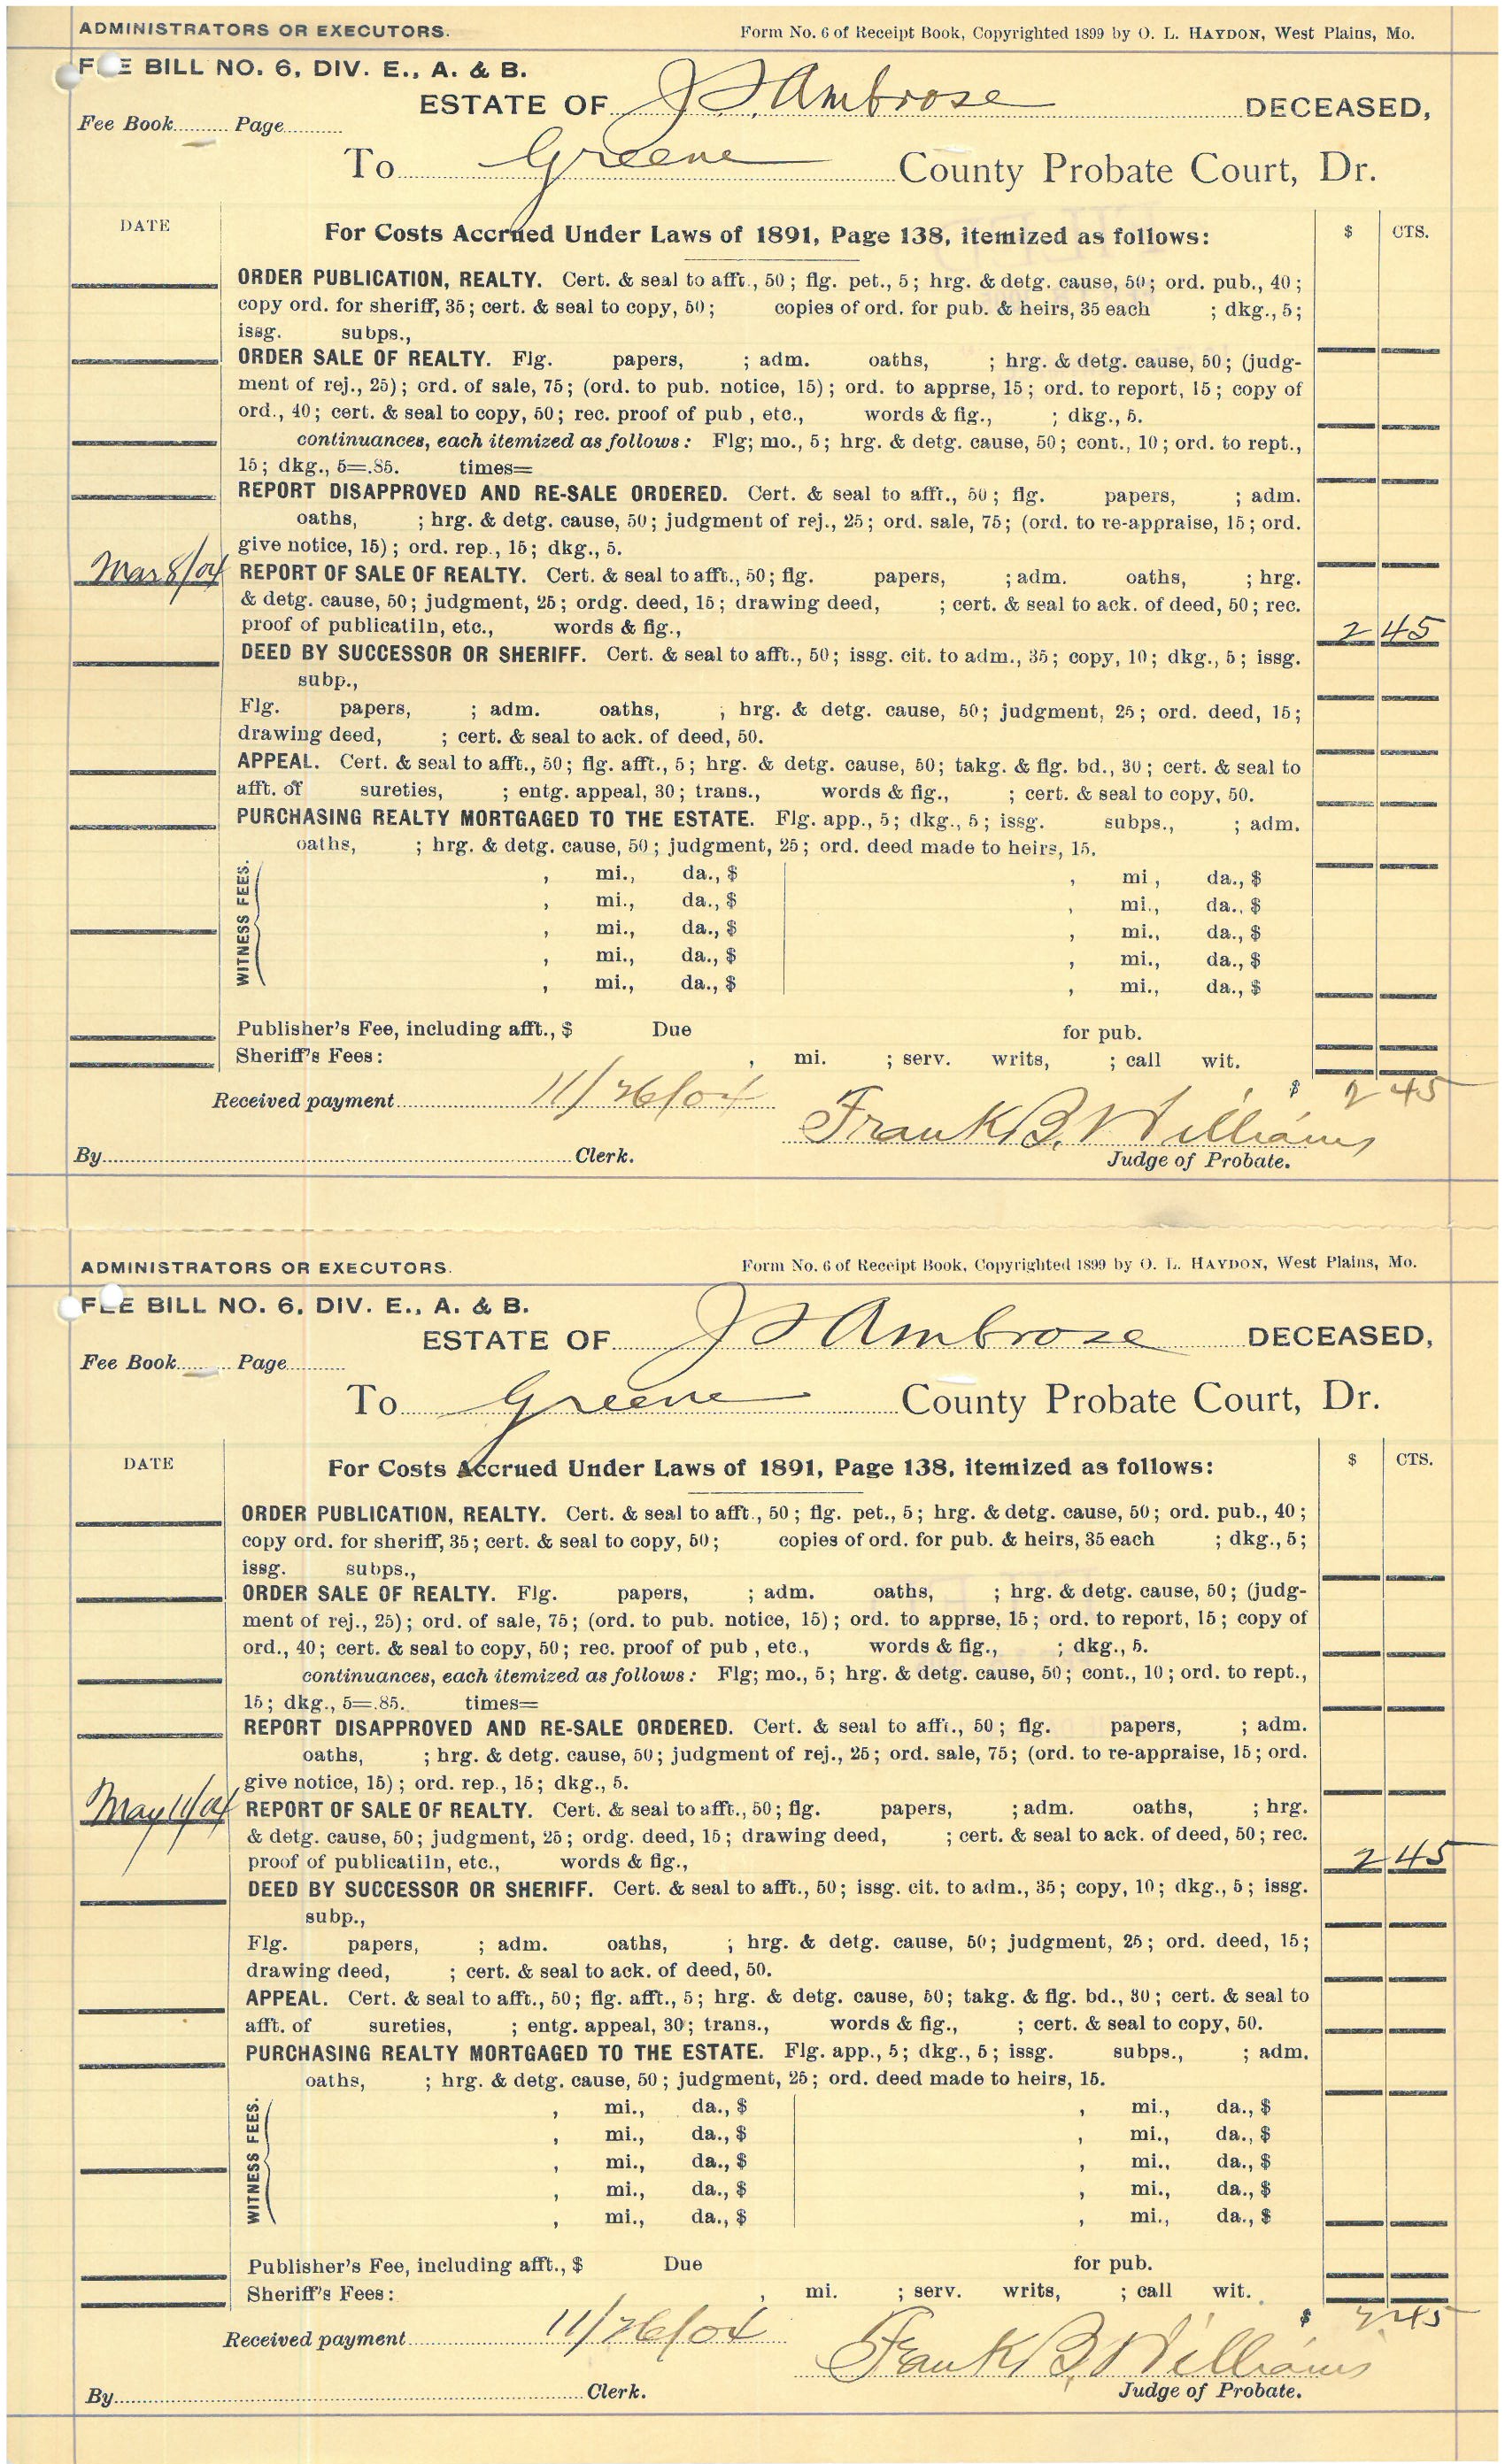 ADMINISTRATORS OR EXECUTORS. Form No. 6 of Receipt Book, Copyrighted 1899 by O. L. HAYDON, West Plains, Mo.
FEE BILL NO. 6, DIV. E., A. & B.
ESTATE OF J. S. Ambrose DECEASED,
Fee Book......... Page.........
To Greene County Probate Court, Dr.
DATE For Costs Accrued Under Laws of 1891, Page 138, itemized as follows: $ CTS.
ORDER PUBLICATION, REALTY. Cert. & seal to afft., 50; flg. pet., 5; hrg. & detg. cause, 50; ord. pub., 40;
copy ord. for sheriff, 35; cert. & seal to copy, 50; copies of ord. for pub. & heirs, 35 each ; dkg., 5;
issg. subps.,
ORDER SALE OF REALTY. Flg. papers, ; adm. oaths, ; hrg. & detg. cause, 50; (judg-
ment of rej., 25); ord. of sale, 75; (ord. to pub. notice, 15); ord. to apprse, 15; ord. to report, 15; copy of
ord., 40; cert. & seal to copy, 50; rec. proof of pub, etc., words & fig., ; dkg., 5.
continuances, each itemized as follows: Flg; mo., 5; hrg. & detg. cause, 50; cont., 10; ord. to rept.,
15; dkg., 5=.85. times=
REPORT DISAPPROVED AND RE-SALE ORDERED. Cert. & seal to afft., 50; flg. papers, ; adm.
oaths, ; hrg. & detg. cause, 50; judgment of rej., 25; ord. sale, 75; (ord. to re-appraise, 15; ord.
give notice, 15); ord. rep., 15; dkg., 5.
Mar 8/04 REPORT OF SALE OF REALTY. Cert. & seal to afft., 50; flg. papers, ; adm. oaths, ; hrg.
& detg. cause, 50; judgment, 25; ordg. deed, 15; drawing deed, ; cert. & seal to ack. of deed, 50; rec.
proof of publicatiln, etc., words & fig., 2 45
DEED BY SUCCESSOR OR SHERIFF. Cert. & seal to afft., 50; issg. cit. to adm., 35; copy, 10; dkg., 5; issg.
subp.,
Flg. papers, ; adm. oaths, ; hrg. & detg. cause, 50; judgment, 25; ord. deed, 15;
drawing deed, ; cert. & seal to ack. of deed, 50.
APPEAL. Cert. & seal to afft., 50; flg. afft., 5; hrg. & detg. cause, 50; takg. & flg. bd., 30; cert. & seal to
afft. of sureties, ; entg. appeal, 30; trans., words & fig., ; cert. & seal to copy, 50.
PURCHASING REALTY MORTGAGED TO THE ESTATE. Flg. app., 5; dkg., 5; issg. subps., ; adm.
oaths, ; hrg. & detg. cause, 50; judgment, 25; ord. deed made to heirs, 15.
WITNESS FEES.
, mi., da., $ , mi, da., $
, mi., da., $ , mi., da., $
, mi., da., $ , mi., da., $
, mi., da., $ , mi., da., $
, mi., da., $ , mi., da., $
Publisher's Fee, including afft., $ Due for pub.
Sheriff's Fees: , mi. ; serv. writs, ; call wit.
$ 2 45
Received payment 11/26/04 Frank B. Williams
By Clerk. Judge of Probate.
ADMINISTRATORS OR EXECUTORS. Form No. 6 of Receipt Book, Copyrighted 1899 by O. L. HAYDON, West Plains, Mo.
FEE BILL NO. 6, DIV. E., A. & B.
ESTATE OF J S Ambrose DECEASED,
Fee Book......... Page.........
To Greene County Probate Court, Dr.
DATE For Costs Accrued Under Laws of 1891, Page 138, itemized as follows: $ CTS.
ORDER PUBLICATION, REALTY. Cert. & seal to afft., 50; flg. pet., 5; hrg. & detg. cause, 50; ord. pub., 40;
copy ord. for sheriff, 35; cert. & seal to copy, 50; copies of ord. for pub. & heirs, 35 each ; dkg., 5;
issg. subps.,
ORDER SALE OF REALTY. Flg. papers, ; adm. oaths, ; hrg. & detg. cause, 50; (judg-
ment of rej., 25); ord. of sale, 75; (ord. to pub. notice, 15); ord. to apprse, 15; ord. to report, 15; copy of
ord., 40; cert. & seal to copy, 50; rec. proof of pub, etc., words & fig., ; dkg., 5.
continuances, each itemized as follows: Flg; mo., 5; hrg. & detg. cause, 50; cont., 10; ord. to rept.,
15; dkg., 5=.85. times=
REPORT DISAPPROVED AND RE-SALE ORDERED. Cert. & seal to afft., 50; flg. papers, ; adm.
oaths, ; hrg. & detg. cause, 50; judgment of rej., 25; ord. sale, 75; (ord. to re-appraise, 15; ord.
give notice, 15); ord. rep., 15; dkg., 5.
May 11/04 REPORT OF SALE OF REALTY. Cert. & seal to afft., 50; flg. papers, ; adm. oaths, ; hrg.
& detg. cause, 50; judgment, 25; ordg. deed, 15; drawing deed, ; cert. & seal to ack. of deed, 50; rec.
proof of publicatiln, etc., words & fig., 2 45
DEED BY SUCCESSOR OR SHERIFF. Cert. & seal to afft., 50; issg. cit. to adm., 35; copy, 10; dkg., 5; issg.
subp.,
Flg. papers, ; adm. oaths, ; hrg. & detg. cause, 50; judgment, 25; ord. deed, 15;
drawing deed, ; cert. & seal to ack. of deed, 50.
APPEAL. Cert. & seal to afft., 50; flg. afft., 5; hrg. & detg. cause, 50; takg. & flg. bd., 30; cert. & seal to
afft. of sureties, ; entg. appeal, 30; trans., words & fig., ; cert. & seal to copy, 50.
PURCHASING REALTY MORTGAGED TO THE ESTATE. Flg. app., 5; dkg., 5; issg. subps., ; adm.
oaths, ; hrg. & detg. cause, 50; judgment, 25; ord. deed made to heirs, 15.
WITNESS FEES.
, mi., da., $ , mi., da., $
, mi., da., $ , mi., da., $
, mi., da., $ , mi., da., $
, mi., da., $ , mi., da., $
, mi., da., $ , mi., da., $
Publisher's Fee, including afft., $ Due for pub.
Sheriff's Fees: , mi. ; serv. writs, ; call wit.
$ 2.45
Received payment 11/26/04 Frank B. Williams
By Clerk. Judge of Probate.